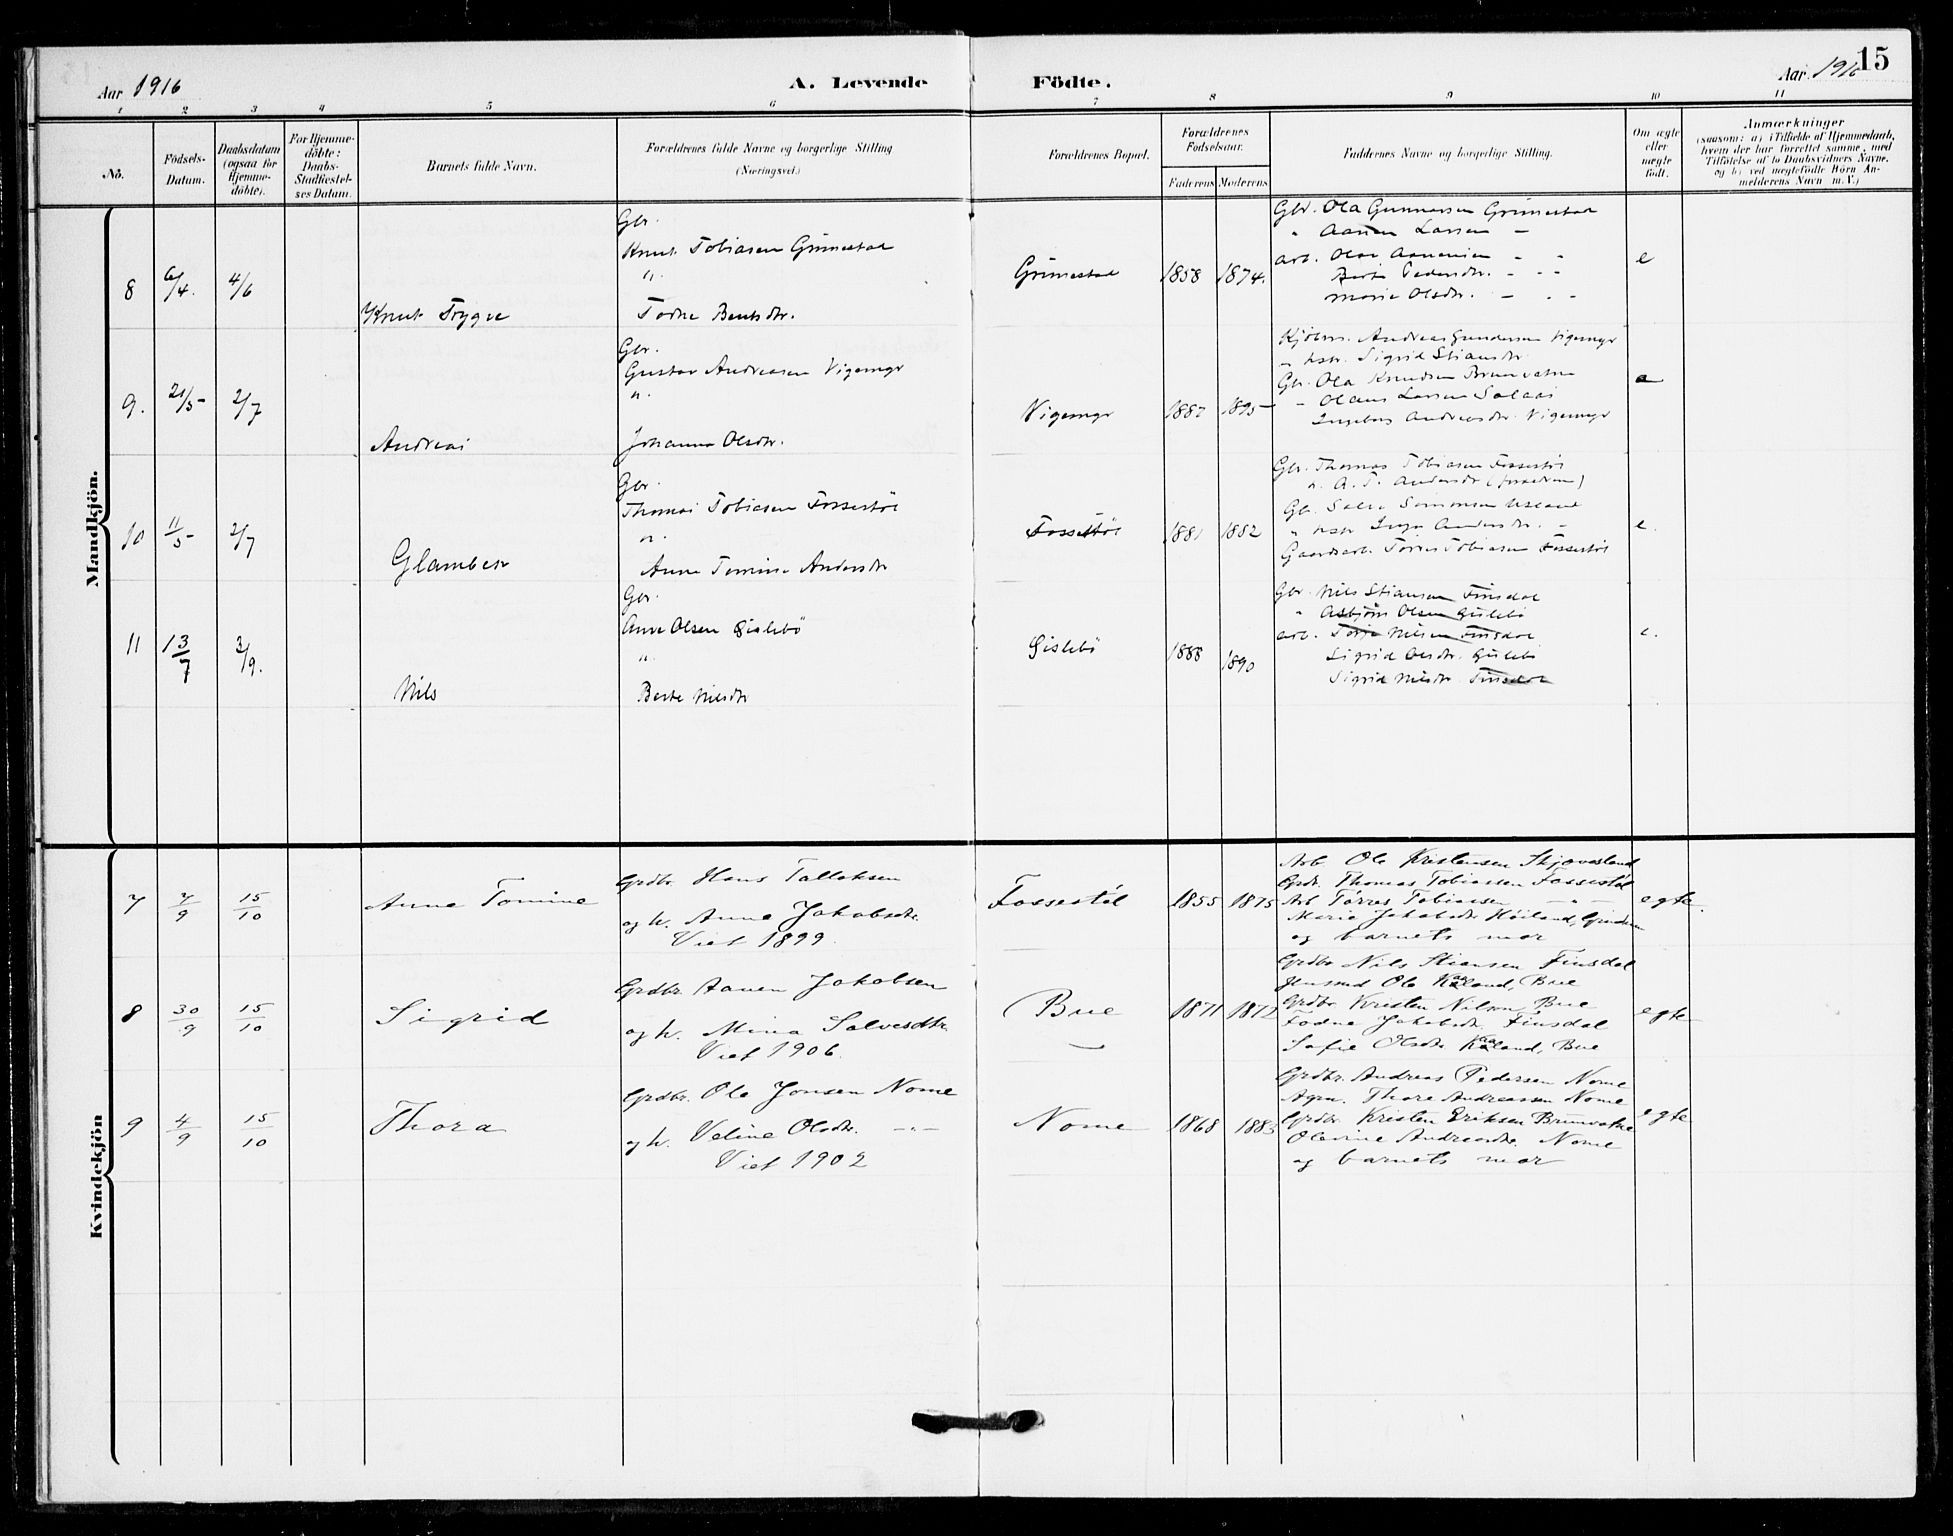 15
Aar 1916
A. Levende Födte.
Aar 1916
1 2 3 4 5 6 7 8 9 10 11
No.
Födsels-Datum.
Daabsdatum (ogsaa for Hjemme-döbte).
For Hjemme-döbte: Daabs-Stadfæstel-ses Datum.
Barnets fulde Navn.
Forældrenes fulde Navne og borgerlige Stilling (Næringsvei.)
Forældrenes Bopæl.
Forældrenes Fødselsaar.
Faderens Moderens
Faddernes Navne og borgerlige Stilling.
Om ægte eller uægte födt.
Anmærkninger
(saasom: a) i Tilfælde af Hjemmedaab, hvem der har forrettet samme, med Tilföielse af to Daabsvidners Navne, og b) ved uægtefödte Börn Anmelderens Navn m. V.)
Mandkjön.
8 6/4. 4/6 Knut Trygve
Gbr.
Knut Tobiasen Grimestad
"
Todne Bentsdtr.
Grimestad 1858 1874.
Gbr. Ola Gunnarsen Grimestad
" Aanen Larsen -
arb. Olav Aanensen - -
Berte Pedersdtr. - - -
Marie Olsdtr. - - -
e
9. 21/5 2/7 Andreas
Gbr.
Gustav Andreasen Vigemyr
"
Johanna Olsdtr.
Vigemyr 1887 1895
Andreas Gundersen Vigemyr
" hstr. Sigrid Stiansdtr.
Gbr. Ola Knudsen Brunvatne
" Olaus Larsen
Ingeborg Andreasdtr. Vigemyr
10 11/5 2/7 Glambek
Gbr.
Thomas Tobiasen Fossestöl
"
Anne Tomine Andersdtr
Fossestöl 1881 1882
Gbr. Thomas Tobiasen Fossestöl
" A. T. Andersdtr
Gaardsarb. Tørres Tobiasen Fossestöl
e.
11 13/7 3/9. Nils
Gbr.
Anve Olsen Gislebö
"
Berte Nilsdtr
Gislebö 1888 1890
Gbr. Nils Stiansen Finsdal
" Asbjörn Olsen Gislebö
arb. Terje Nilsen Finsdal
Sigrid Olsdtr. Gislebö
Sigrid Nilsdtr. Finsdal
e.
Kvindekjön
7 7/9 15/10 Anne Tomine
Grdbr. Hans Tallaksen
og h. Anne Jakobsdtr.
Viet 1899.
Fossestöl 1855 1875
Arb. Ole Kristensen Skjævesland
Grdr. Thomas Tobiassen Fossestöl
Arb Tørres Tobiasen - " -
Maria Jakobsdtr Höiland,
og barnets mor
egte.
8 30/9 15/10 Sigrid
Grdbr. Aanen Jakobsen
og h. Mina Salvesdtr.
Viet 1906.
Bue 1871 1872
Grdbr Nils Stiansen Finsdal
Ole Kaaland, Bue
Grdbr. Kristen Nilsen Bue
Todne Jakobsdtr. Finsdal
Sofie Olsdtr Kaaland, Bue
egte
9 4/9 15/10 Thora
Grdbr. Ole Jonsen Nome
og h. Veline Olsdtr. - " -
Viet 1902
Nome 1868 1883
Grdbr. Andreas Pedersen Nome
Agrn. Thore Andreassen Nome
Grdbr. Kristen Eriksen Brunvatne
Olevine Andreasdtr. Nome
og barnets mor
egte